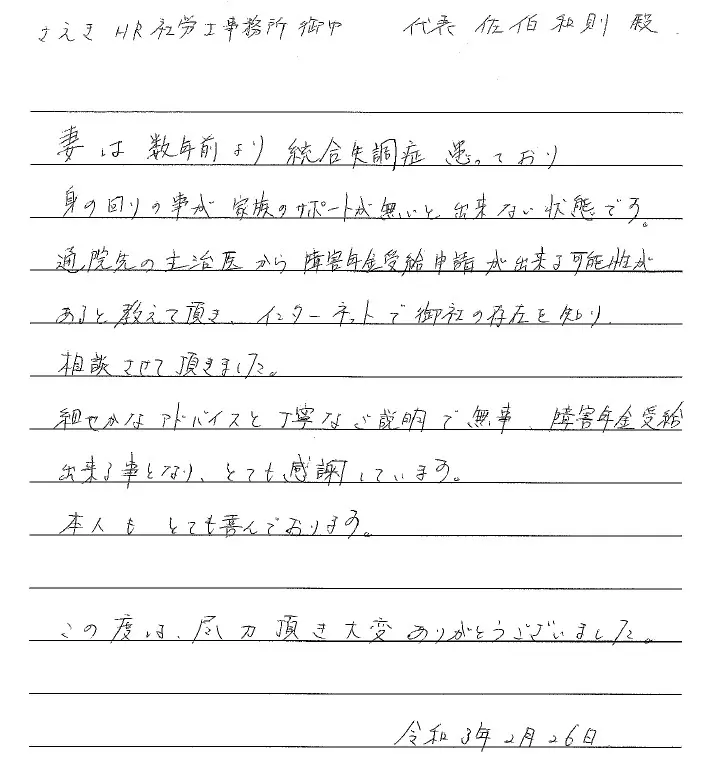 さえきHR社労士事務所御中　代表 佐伯和則 殿
妻は数年前より統合失調症患っており
身の回りの事が家族のサポートが無いと出来ない状態です。
通院先の主治医から障害年金受給申請が出来る可能性が
あると教えて頂き、インターネットで御社の存在を知り、
相談させて頂きました。
細やかなアドバイスと丁寧なご説明で無事、障害年金受給
出来る事となり、とても感謝しています。
本人もとても喜んでおります。
この度は、尽力頂き大変ありがとうございました。
令和3年2月26日